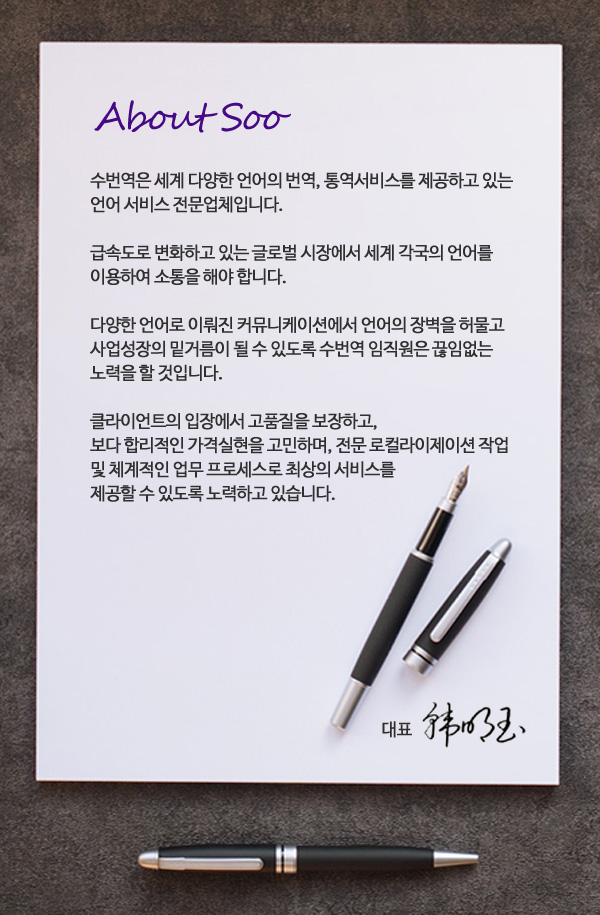 About Soo
수번역은 세계 다양한 언어의 번역, 통역서비스를 제공하고 있는
언어 서비스 전문업체입니다.
급속도로 변화하고 있는 글로벌 시장에서 세계 각국의 언어를
이용하여 소통을 해야 합니다.
다양한 언어로 이뤄진 커뮤니케이션에서 언어의 장벽을 허물고
사업성장의 밑거름이 될 수 있도록 수번역 임직원은 끊임없는
노력을 할 것입니다.
클라이언트의 입장에서 고품질을 보장하고,
보다 합리적인 가격실현을 고민하며, 전문 로컬라이제이션 작업
및 체계적인 업무 프로세스로 최상의 서비스를
제공할 수 있도록 노력하고 있습니다.
대표 韓明玉